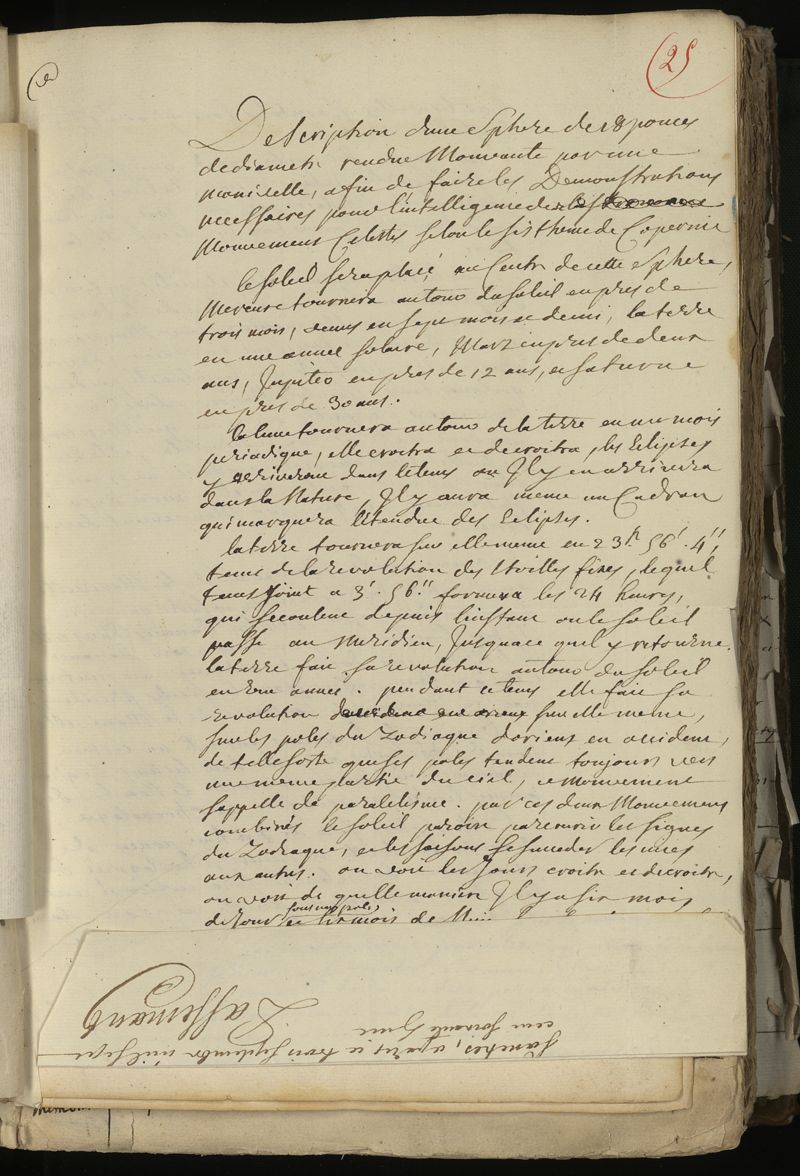 25
Description d'une Sphere de 18 pouces
de diametre rendue Mouvante par une
manivelle, afin de faire les Demonstrations
necessaires pour l'intelligence des
Mouvement Celestes selon le sistheme de Copernic
le soleil sera placé au Centre de cette Sphere,
Mercure tournera autour du soleil en pres de
trois mois, venus en sept mois et demi, la terre
en une année solaire, Mars en pres de deux
ans, Jupiter en pres de 12 ans, et saturne
en pres de 30 ans.
la lune tournera autour de la terre en un mois
periodique, elle croitra et decroitra, les Eclipses
y arriveront dans le tems ou Il y en arrivera
dans la Nature, Il y aura meme un Cadran
qui marquera l'étendue des Eclipses.
la terre tournera sur elle meme en 23h 56' 4'',
tems de la revolution des Etoilles fixes, lequel
tems Joint a 3' 56'' formera les 24 heures,
qui secoulent depuis linstant ou le soleil
passe au meridien, Jusqu'a ce qu'il y retourne.
la terre fait sa revolution autour du soleil
en une année. pendant ce tems elle fait sa
revolution sur elle meme,
sur les poles du Zodiaque d'orient en occident,
de telle sorte que ses poles tendent toujours vers
une meme partie du ciel, ce Mouvement
s'appelle de paralelisme. par ces deux Mouvemens
combinés le soleil paroit parcourir les signes
du Zodiaque, et les saisons se succeder les unes
aux autres. on voit les Jours croitre et decroitre,
on voit de quelle maniere Il y a six mois
de Jour et six mois de
sous les poles
Passemant
cent soixante
a paris ce trois septembre mil sept